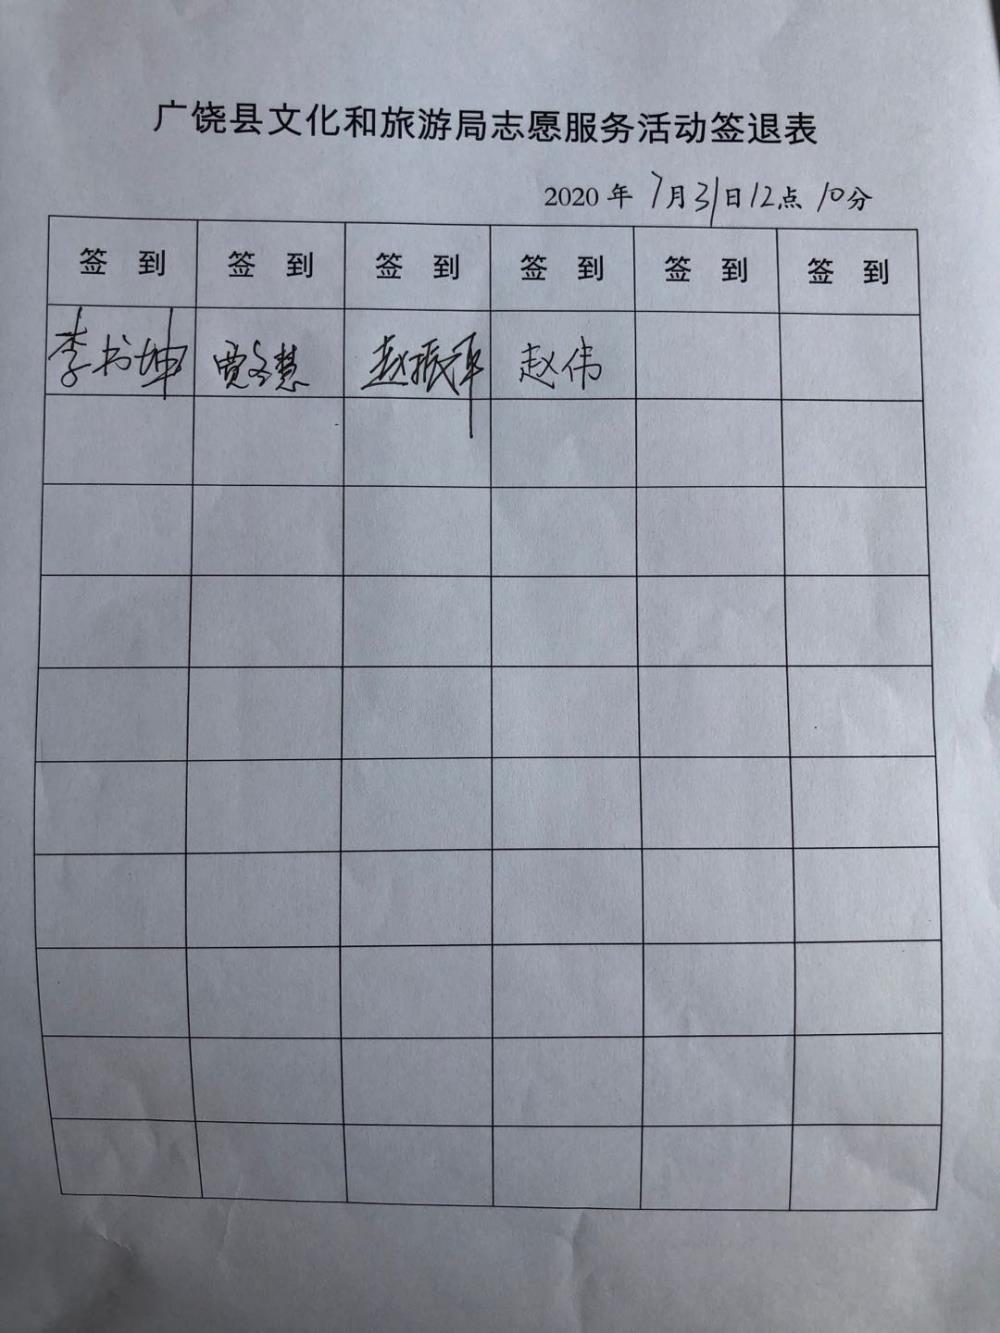 广饶县文化和旅游局志愿服务活动签退表
2020 年 7月31日12点 10分
签 到 签 到 签 到 签 到 签 到 签 到
李书坤 贾冬慧 赵振军 赵伟